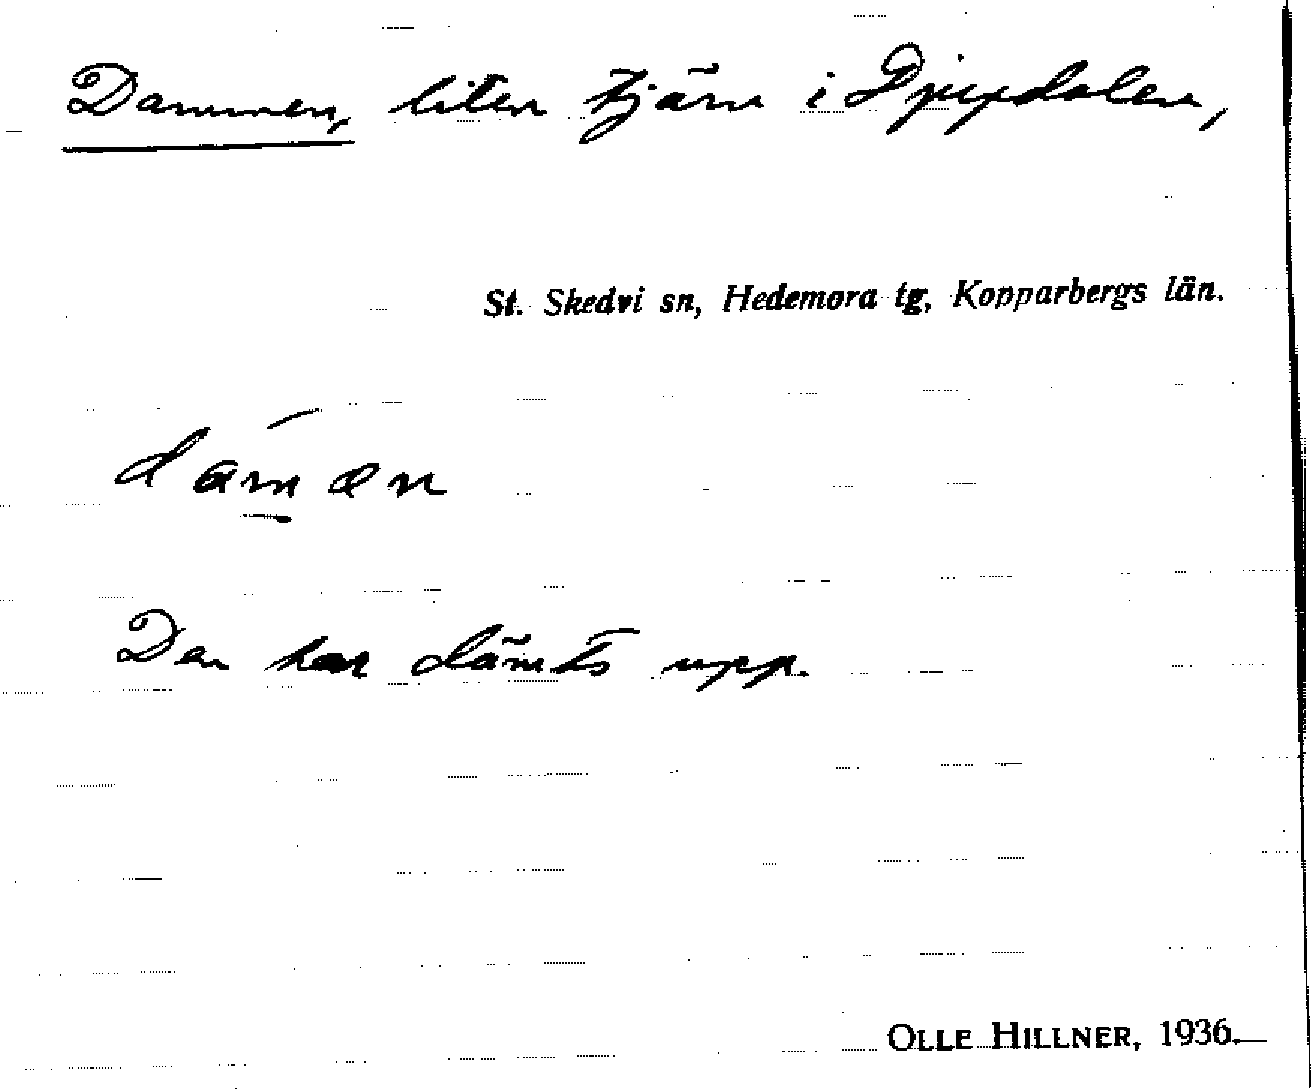 Dammen, liten tjärn i Djupdalen,
St. Skedvi sn, Hedemora tg, Kopparbergs län.
dámæn
Den har dämts upp.
OLLE HILLNER, 1936.